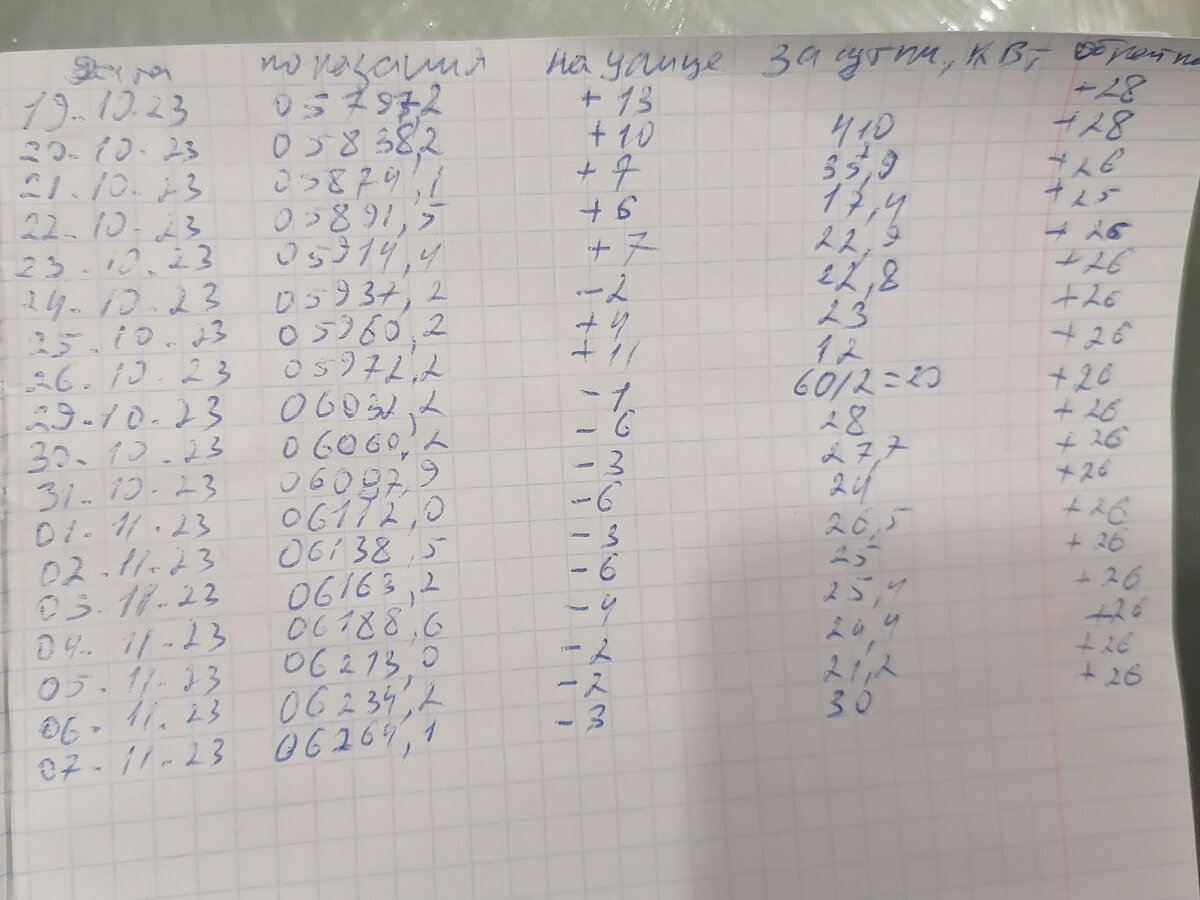 Дата показания на улице За сутки, КВт обратка
19.10.23 05797,2 +13 +28
20.10.23 05838,2 +10 410 +28
21.10.23 05874,1 +7 35,9 +26
22.10.23 05891,5 +6 17,4 +25
23.10.23 05914,4 +7 22,9 +26
24.10.23 05937,2 -2 22,8 +26
25.10.23 05960,2 +4 23 +26
26.10.23 05972,2 +11 12 +26
29.10.23 06032,2 -1 60/2=20 +26
30.10.23 06060,2 -6 28 +26
31.10.23 06087,9 -3 27,7 +26
01.11.23 06112,0 -6 24 +26
02.11.23 06138,5 -3 26,5 +26
03.11.23 06163,2 -6 25 +26
04.11.23 06188,6 -4 25,4 +26
05.11.23 06213,0 -2 24,4 +26
06.11.23 06234,2 -2 21,2 +26
07.11.23 06264,1 -3 30 +26